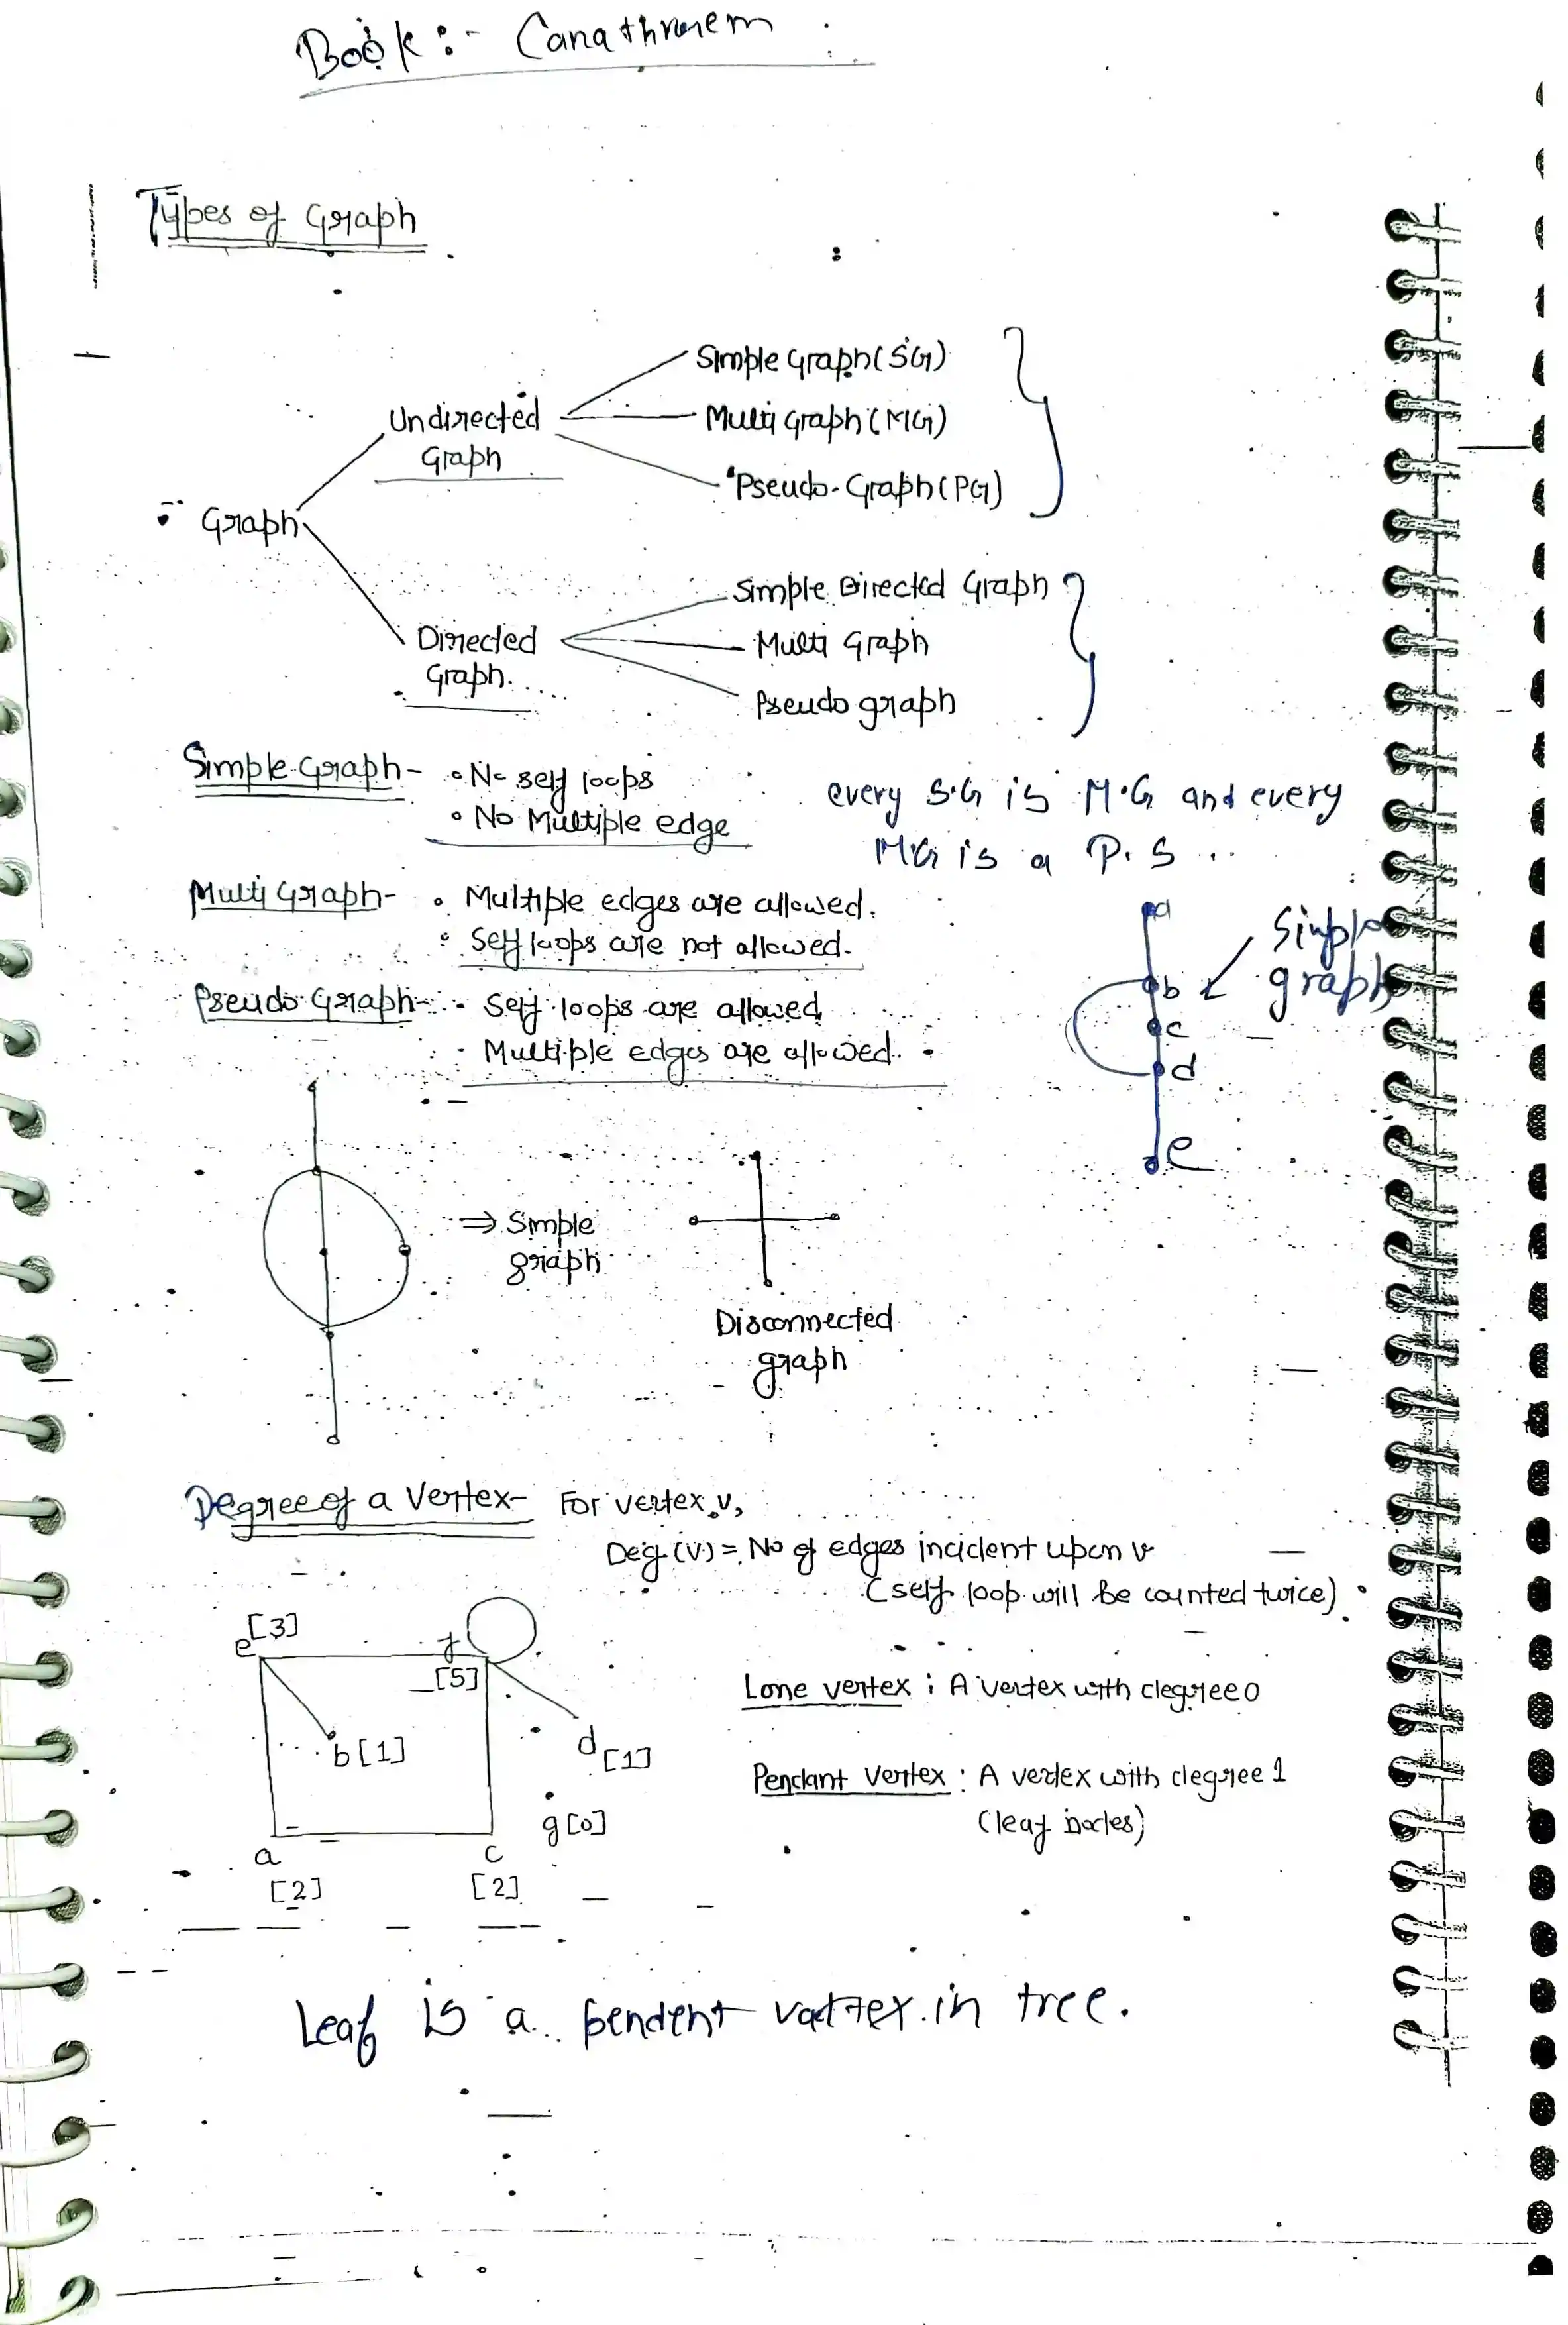 Book :- Canathronem
Types of Graph
Simple Graph (SG)
Undirected
Graph
Multi Graph (MG)
Pseudo-Graph (PG)
Graph
Simple Directed Graph
Directed
Graph
Multi Graph
Pseudo graph
Simple Graph - No self loops
No Multiple edge
every S.G is M.G and every
M.G is a P.S ..
Multi Graph - Multiple edges are allowed.
Self loops are not allowed.
Pseudo Graph - Self loops are allowed
Multiple edges are allowed.
a
b
c
d
e
Simple
graph
⇒ Simple
graph
Disconnected
graph
Degree of a Vertex - For vertex v,
Deg (v) = No of edges incident upon v
(self loop will be counted twice)
e [3]
f
[5]
b [1]
d [1]
g [0]
a
[2]
c
[2]
Lone vertex : A vertex with degree 0
Pendant Vertex : A vertex with degree 1
(leaf nodes)
Leaf is a pendent vartex in tree.